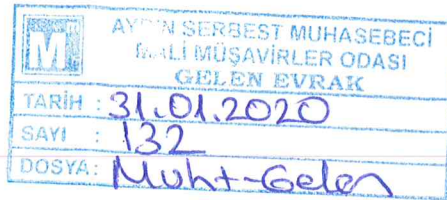 M
AYDIN SERBEST MUHASEBECİ
MALİ MÜŞAVİRLER ODASI
GELEN EVRAK
TARİH : 31.01.2020
SAYI : 132
DOSYA: Muht-Gelen